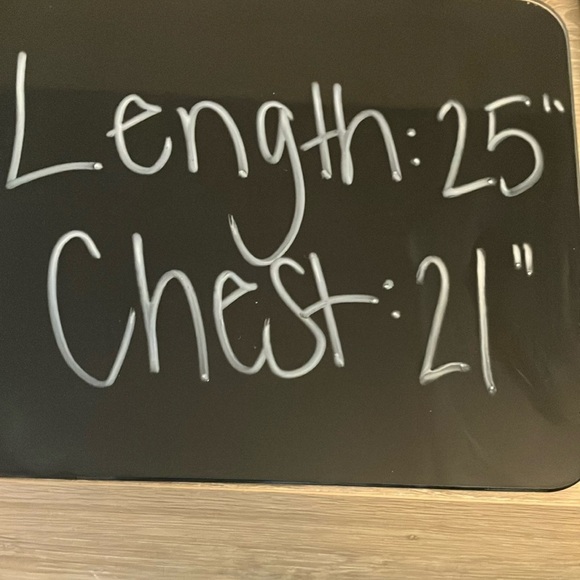 Length: 25"
Chest: 21"